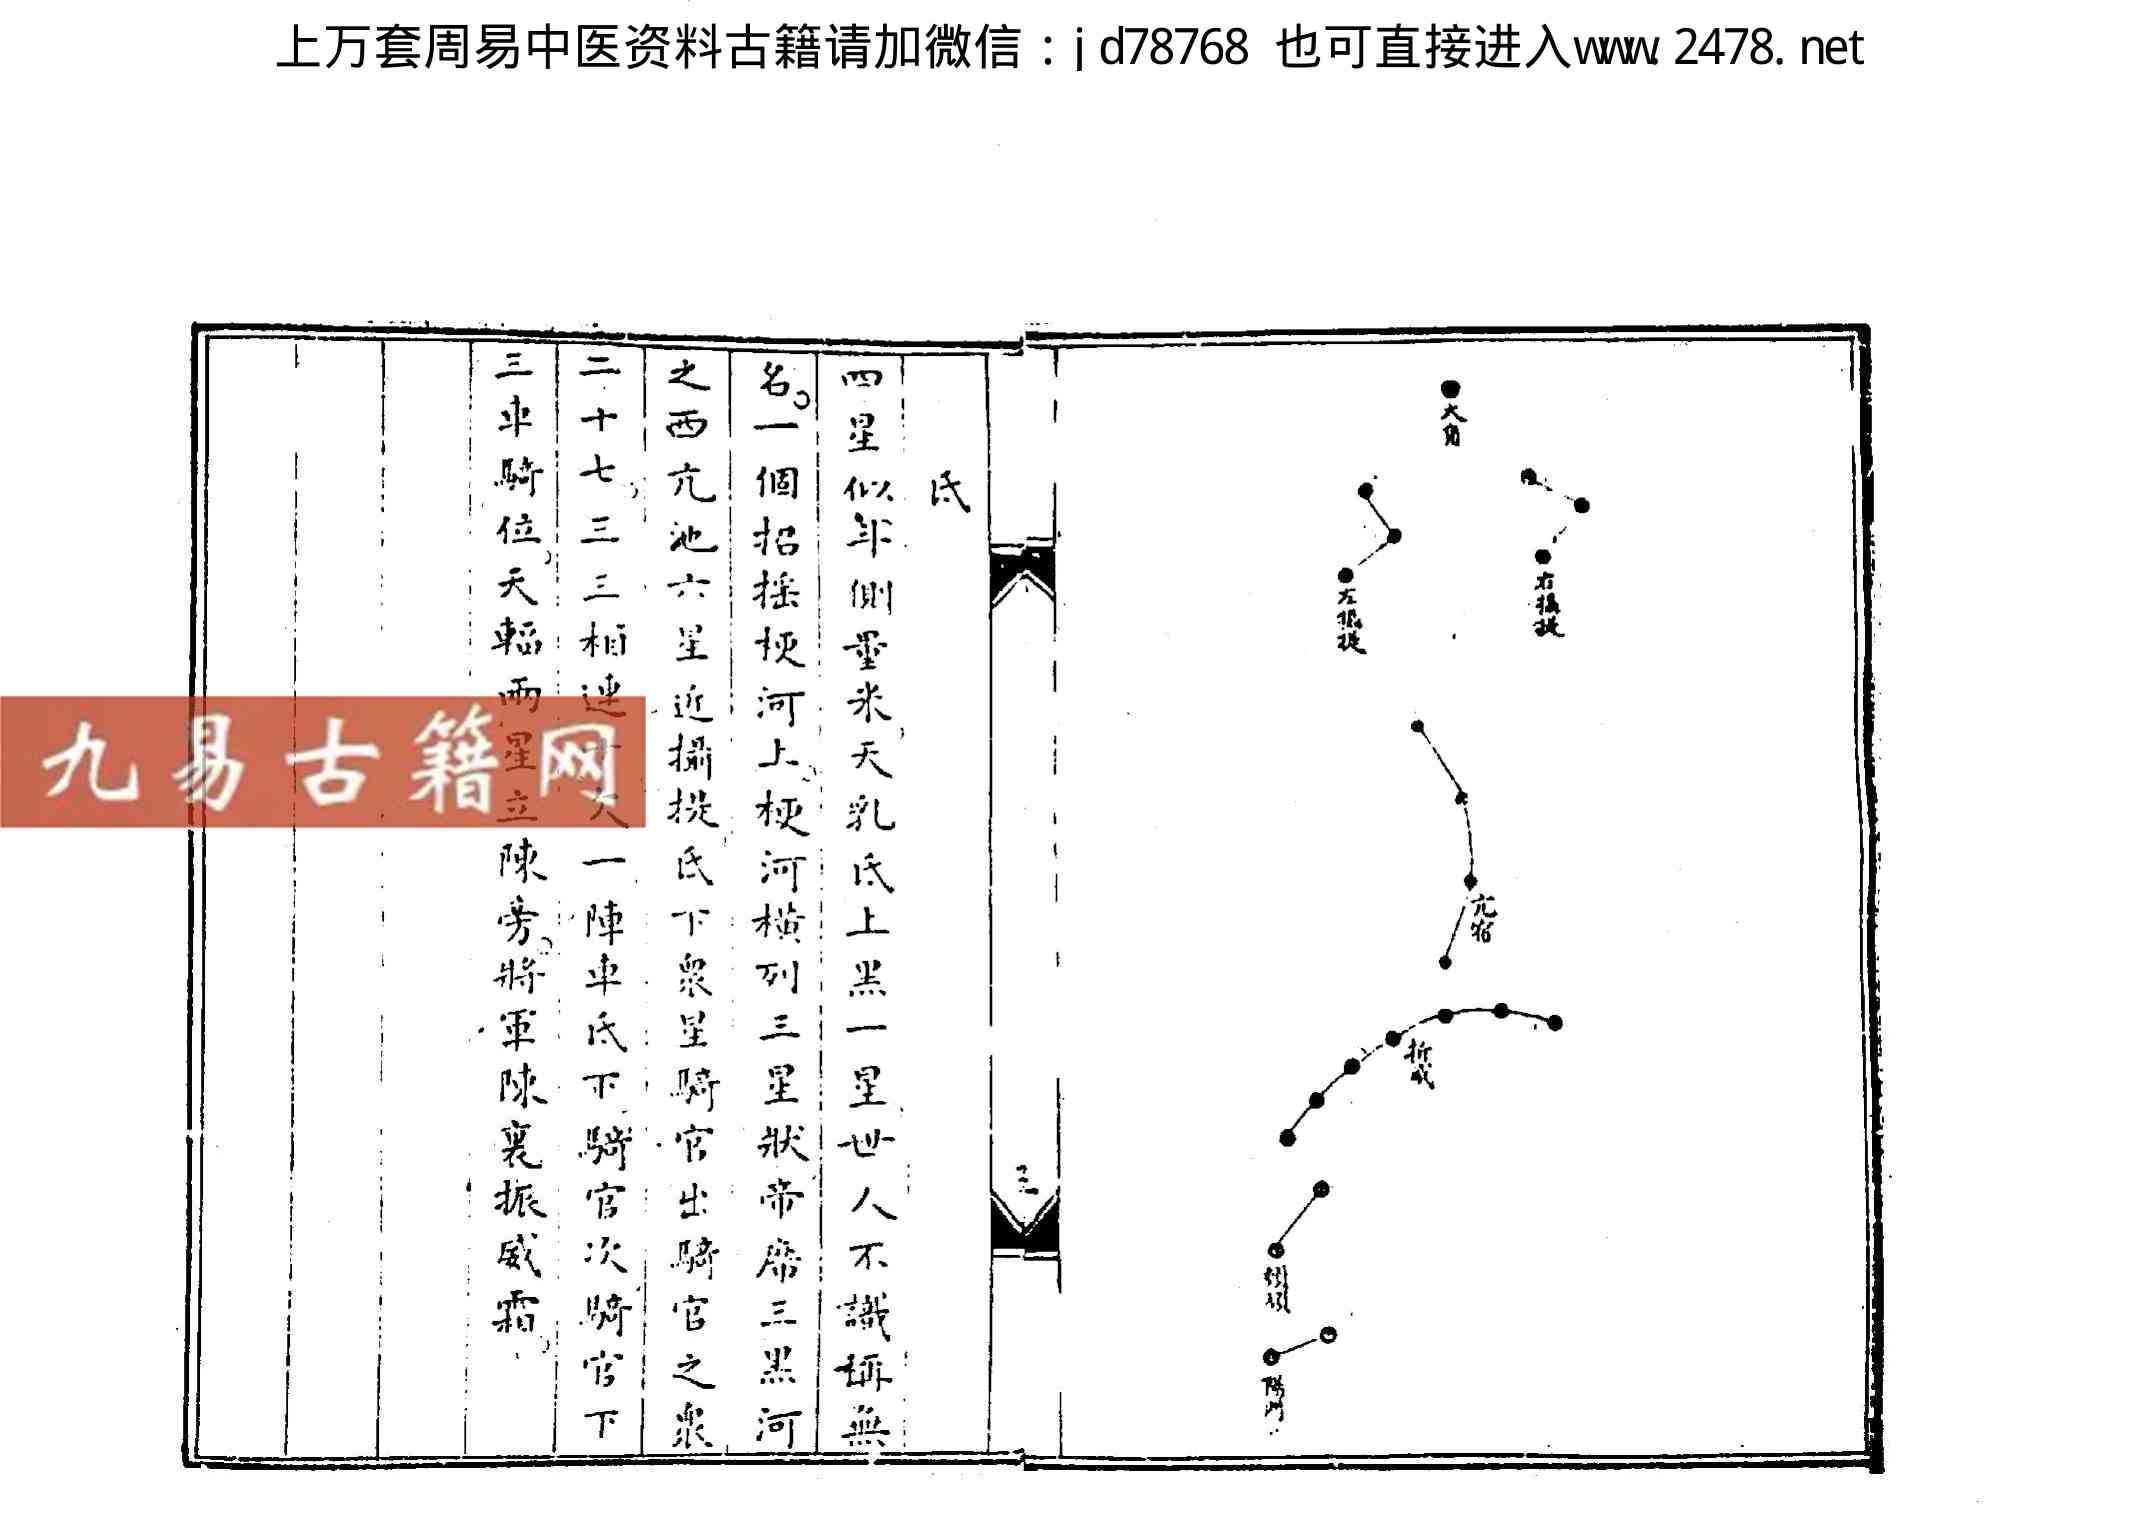 上万套周易中医资料古籍请加微信：jd78768 也可直接进入www.2478.net
大角
右攝提
左攝提
亢宿
折威
頓頑
陽門
三
氐
四星似斗側量米天乳氐上黑一星世人不識稱無
名一個招摇梗河上梗河横列三星狀帝席三黑河
之西亢池六星近攝提氐下衆星騎官出騎官之衆
二十七三三相連十欠一陣車氐下騎官次騎官下
三車騎位天輻兩星立陳旁將軍陳裏振威霜
九易古籍网